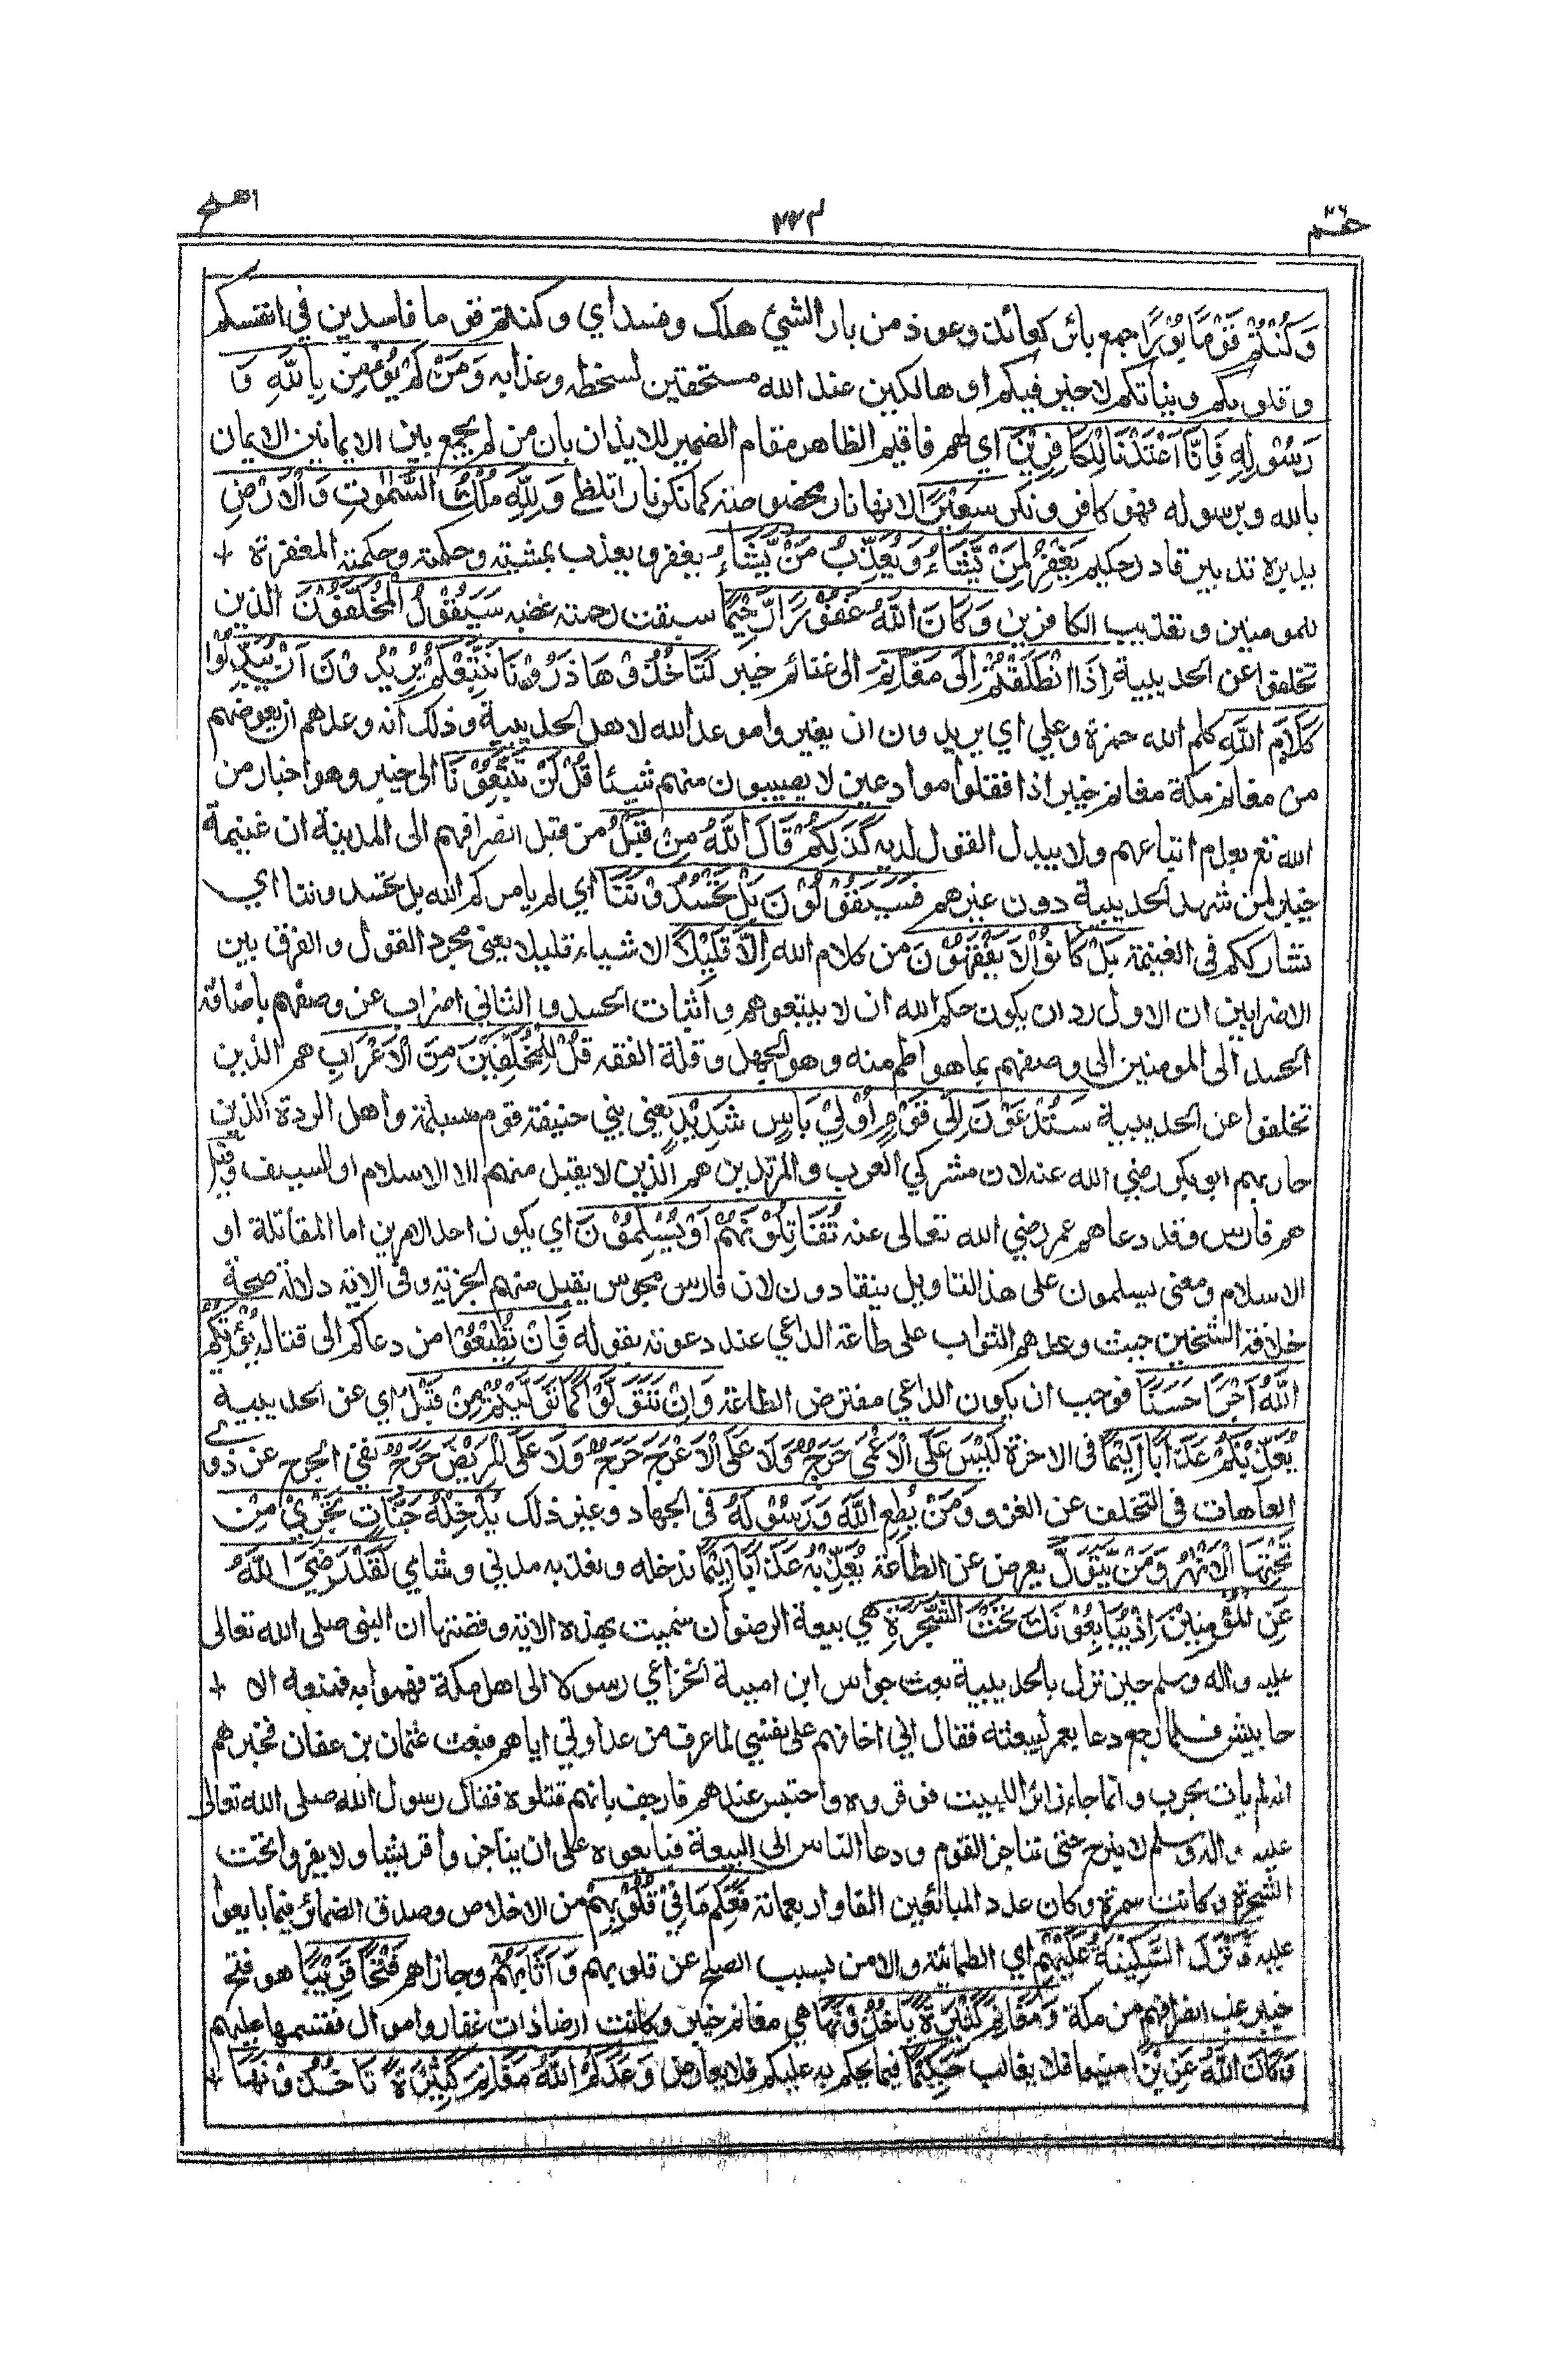 حٰم ٢٣٢ الفتح
وَكُنْتُمْ قَوْمًا بُوْرًا جمع بائر كعائذ وعوذ من بار الشيئ هلك وفسد اي وكنتم قوما فاسدين في انفسكم
وقلوبكم ونياتكم لا خير فيكم او هالكين عند الله مستحقين لسخطه وعذابه وَمَنْ لَمْ يُؤْمِنْ بِاللّٰهِ وَ
رَسُوْلِهٖ فَاِنَّا اَعْتَدْنَا لِلْكَافِرِيْنَ اي لهم فاقيم الظاهر مقام الضمير للايذان بان من لم يجمع بين الايمانين الايمان
بالله وبرسوله فهو كافر ونكر سَعِيْرًا لانها نار مخصوصة كما نكر نارا تلظى وَلِلّٰهِ مُلْكُ السَّمٰوٰتِ وَالْاَرْضِ
يدبره تدبير قادر حكيم يَغْفِرُ لِمَنْ يَّشَاءُ وَيُعَذِّبُ مَنْ يَّشَاءُ يغفر ويعذب بمشيته وحكمته وحكمته المغفرة +
للمومنين وتعذيب الكافرين وَكَانَ اللّٰهُ غَفُوْرًا رَّحِيْمًا سبقت رحمته غضبه سَيَقُوْلُ الْمُخَلَّفُوْنَ الذين
تخلفوا عن الحديبية اِذَا انْطَلَقْتُمْ اِلٰى مَغَانِمَ الى غنائم خيبر لِتَاْخُذُوْهَا ذَرُوْنَا نَتَّبِعْكُمْ يُرِيْدُوْنَ اَنْ يُّبَدِّلُوْا
كَلَامَ اللّٰهِ كلم الله حمزة وعلي اي يريدون ان يغيروا موعد الله لاهل الحديبية وذلك انه وعدهم ان يعوضهم
من مغانم مكة مغانم خيبر اذا قفلوا موادعين لا يصيبون منهم شيئا قُلْ لَّنْ تَتَّبِعُوْنَا الى خيبر وهو اخبار من
الله تع بعدم اتباعهم ولا يبدل القول لديه كَذٰلِكُمْ قَالَ اللّٰهُ مِنْ قَبْلُ من قبل انصرافهم الى المدينة ان غنيمة
خيبر لمن شهد الحديبية دون غيرهم فَسَيَقُوْلُوْنَ بَلْ تَحْسُدُوْنَنَا اي لم يامركم الله بل تحسدوننا اي
نشارككم فى الغنيمة بَلْ كَانُوْا لَا يَفْقَهُوْنَ من كلام الله اِلَّا قَلِيْلًا الا شياء قليلا يعنى مجرد القول والفرق بين
الاضرابين ان الاول رد ان يكون حكم الله ان لا يتبعوهم واثبات الحسد والثاني اضراب عن وصفهم باضافة
الحسد الى المومنين الى وصفهم بما هو اطم منه وهو الجهل وقلة الفقه قُلْ لِّلْمُخَلَّفِيْنَ مِنَ الْاَعْرَابِ هم الذين
تخلفوا عن الحديبية سَتُدْعَوْنَ اِلٰى قَوْمٍ اُولِيْ بَاْسٍ شَدِيْدٍ يعنى بني حنيفة قوم مسيلمة واهل الردة الذين
حاربهم ابو بكر رضي الله عنه لان مشركي العرب والمرتدين هم الذين لا يقبل منهم الا الاسلام او السيف وقيل
هم فارس وقد دعاهم عمر رضي الله تعالى عنه تُقَاتِلُوْنَهُمْ اَوْ يُسْلِمُوْنَ اي يكون احد الامرين اما المقاتلة او
الاسلام ومعنى يسلمون على هذا التاويل ينقادون لان فارس مجوس يقبل منهم الجزية وفى الاية دلالة صحة
خلافة الشيخين حيث وعدهم الثواب على طاعة الداعي عند دعوته بقوله فَاِنْ تُطِيْعُوْا من دعاكم الى قتاله يُؤْتِكُمُ
اللّٰهُ اَجْرًا حَسَنًا فوجب ان يكون الداعي مفترض الطاعة وَاِنْ تَتَوَلَّوْا كَمَا تَوَلَّيْتُمْ مِنْ قَبْلُ اي عن الحديبية
يُعَذِّبْكُمْ عَذَابًا اَلِيْمًا فى الاخرة لَيْسَ عَلَى الْاَعْمٰى حَرَجٌ وَّلَا عَلَى الْاَعْرَجِ حَرَجٌ وَّلَا عَلَى الْمَرِيْضِ حَرَجٌ نفي الحرج عن ذوي
العاهات فى التخلف عن الغزو وَمَنْ يُطِعِ اللّٰهَ وَرَسُوْلَهٗ فى الجهاد وغير ذلك يُدْخِلْهُ جَنَّاتٍ تَجْرِيْ مِنْ
تَحْتِهَا الْاَنْهٰرُ وَمَنْ يَّتَوَلَّ يعرض عن الطاعة يُعَذِّبْهُ عَذَابًا اَلِيْمًا ندخله ونعذبه مدني وشامي لَقَدْ رَضِيَ اللّٰهُ
عَنِ الْمُؤْمِنِيْنَ اِذْ يُبَايِعُوْنَكَ تَحْتَ الشَّجَرَةِ هي بيعة الرضوان سميت بهذه الاية وقصتها ان النبى صلى الله تعالى
عليه واله وسلم حين نزل بالحديبية بعث جواس ابن امية الخزاعي رسولا الى اهل مكة فهموا به فمنعه الا +
حابيش فلما رجع دعا بعمر ليبعثه فقال اني اخافهم على نفسي لما عرف من عداوتي اياهم فبعث عثمان بن عفان فخبرهم
انه لم يات بحرب وانما جاء زائرا للبيت فوقروه واحتبس عندهم فارجف بانهم قتلوه فقال رسول الله صلى الله تعالى
عليه واله وسلم لا نبرح حتى نناجز القوم ودعا الناس الى البيعة فبايعوه على ان يناجزوا قريشا ولا يفروا تحت
الشجرة وكانت سمرة وكان عدد المبائعين الفا واربعمائة فَعَلِمَ مَا فِيْ قُلُوْبِهِمْ من الاخلاص وصدق الضمائر فيما بايعوا
عليه فَاَنْزَلَ السَّكِيْنَةَ عَلَيْهِمْ اي الطمانينة والامن بسبب الصلح عن قلوبهم وَاَثَابَهُمْ وجازاهم فَتْحًا قَرِيْبًا هو فتح
خيبر غب انصرافهم من مكة وَمَغَانِمَ كَثِيْرَةً يَّاْخُذُوْنَهَا هي مغانم خيبر وكانت ارضا ذات عقار واموال فقسمها عليهم
وَكَانَ اللّٰهُ عَزِيْزًا منيعا فلا يغالب حَكِيْمًا فيما يحكم به عليكم فلا يعارض وَعَدَكُمُ اللّٰهُ مَغَانِمَ كَثِيْرَةً تَاْخُذُوْنَهَا +